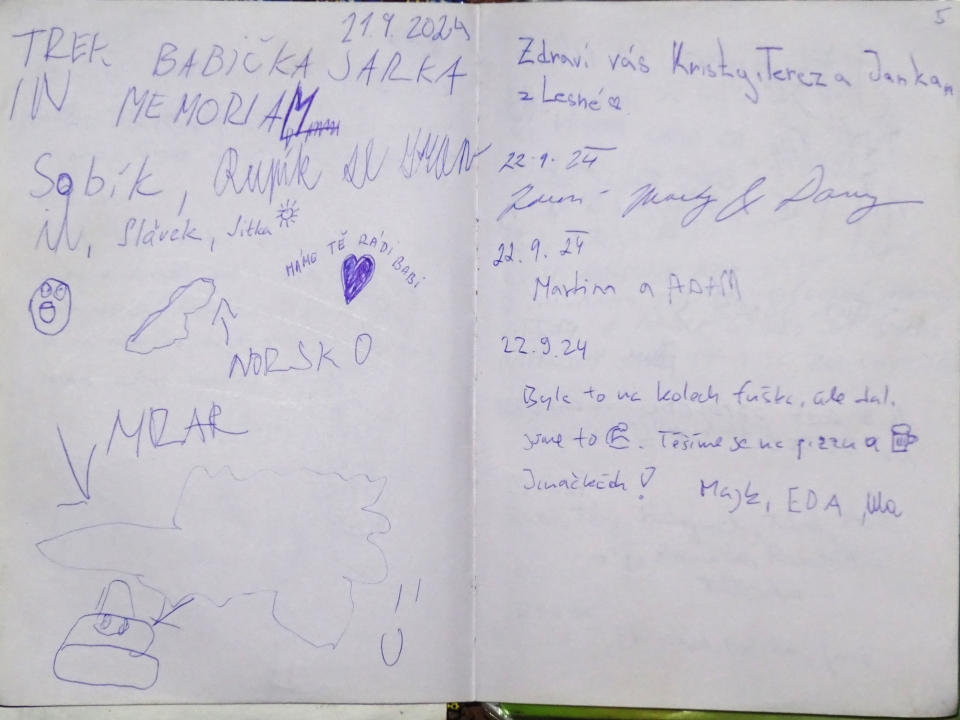 21.9.2024
TREK BABIČKA JARKA
IN MEMORIAM
Sobík, Rupík se
Slávek, Jitka
MÁME TĚ RÁDI BABI
NORSKO
MRAR
5
Zdraví vás Kristy, Terez a Janka
z Lesné
22.9.24
22.9.24
Martina a ADAM
22.9.24
Byla to na kolech fuška, ale dal.
jsme to. Těšíme se na pizzu a
Majk, EDA,